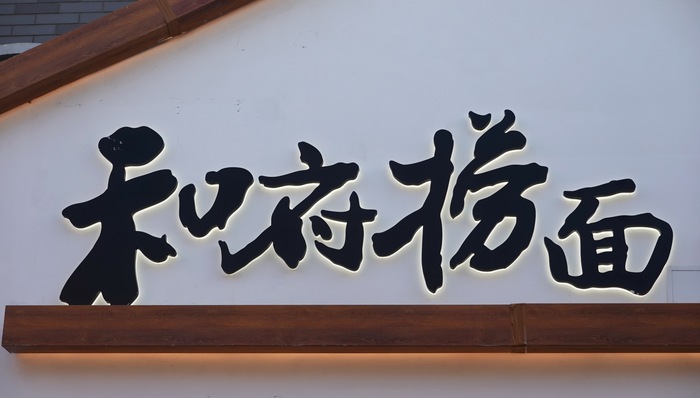 和府捞面